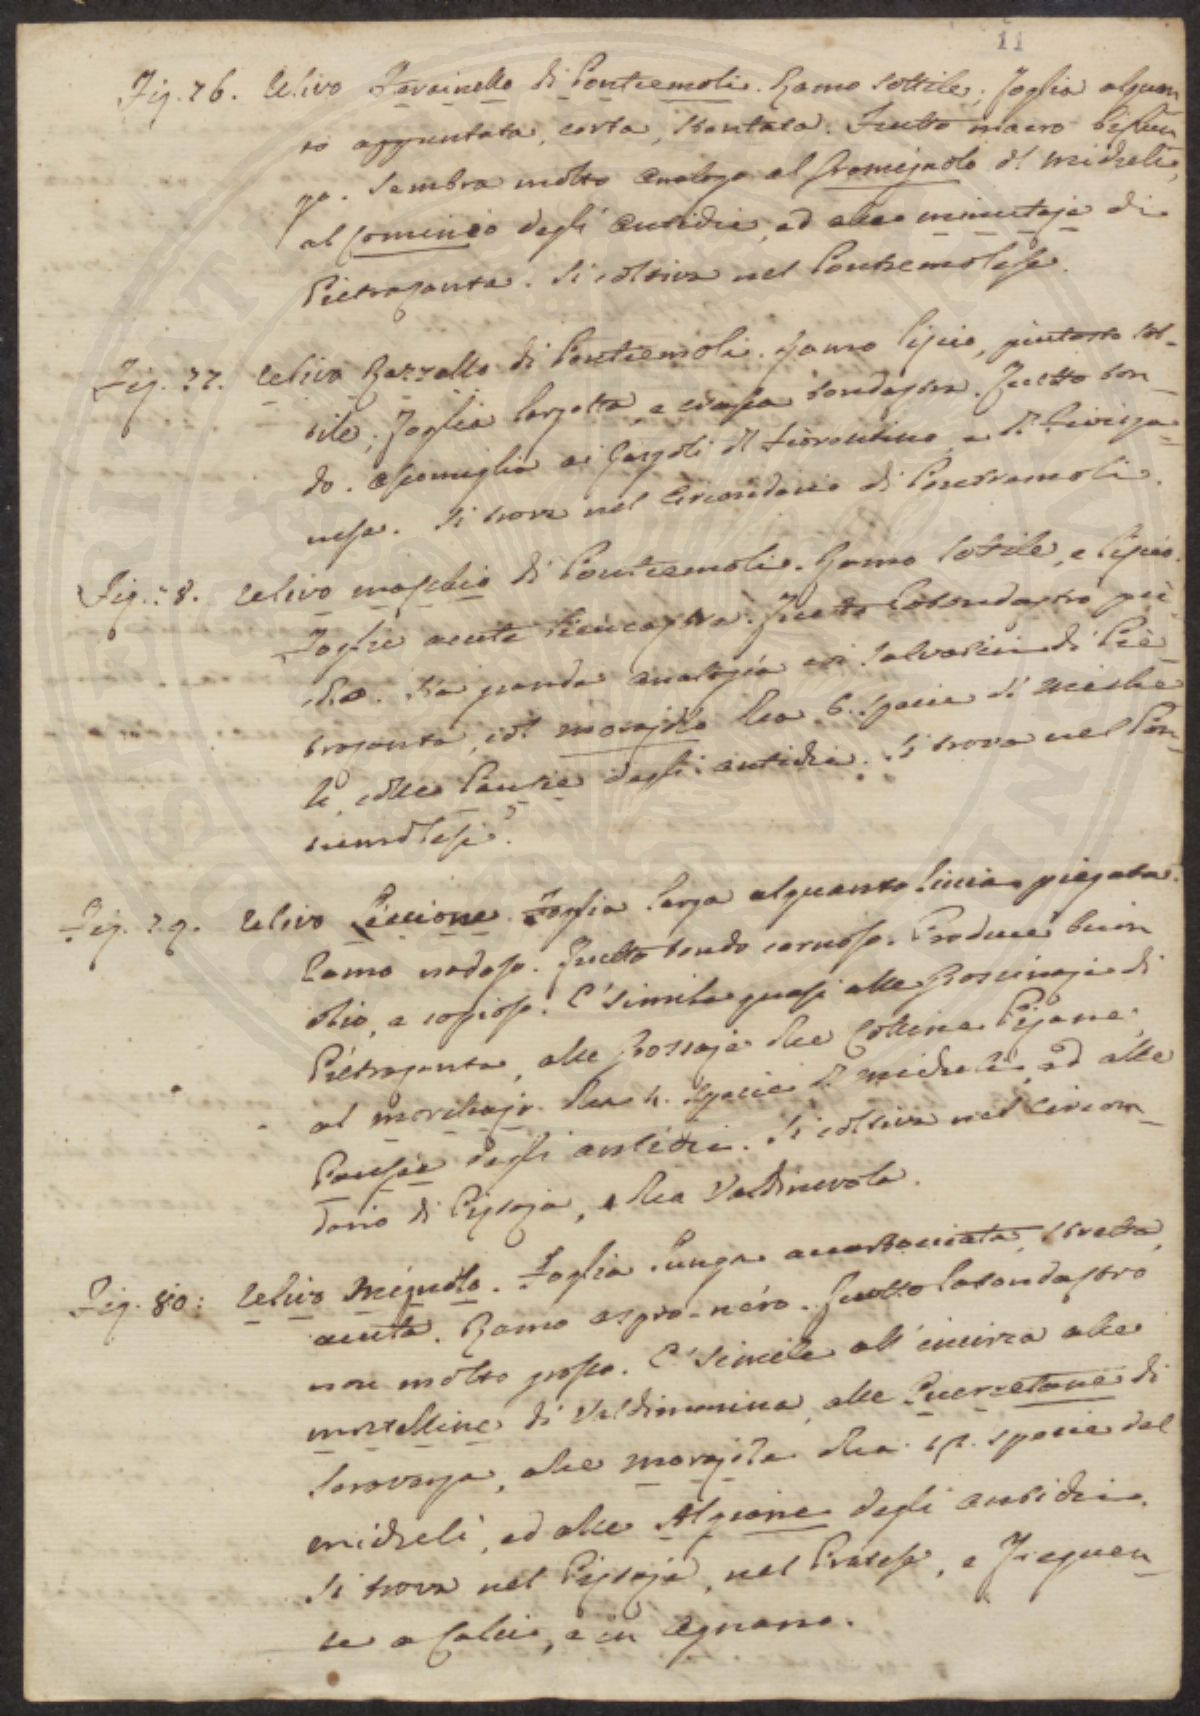 11
Fig. 76. Ulivo di Pontremoli. Ramo sottile; foglia alquan
to appuntata, corta, stentata. Frutto macro bislun
go. Sembra molto analogo al Gromignolo d. Micheli,
al Cominio degli Antichi, ed alle minutaje di
Pietrasanta. Si coltiva nel Pontremolese.
Fig. 77. Ulivo Razzallo di Pontremoli. Ramo liscio, piutosto sot-
tile; foglia larghetta, e tondastra. Frutto ton-
do. Assomiglia ai d. Fiorentino, e d. Fivizza=
nese. Si trova nel Circondario di Pontremoli.
Fig. 78. Ulivo maschio di Pontremoli. Ramo sottile, e liscio.
Foglie acute. Frutto rotondastro pic-
colo. Ha grande analogia coi Salvatici di Pie-
trasanta, col morajolo della 6. specie di Miche
li, colle Pausie degli antichi. Si trova nel Pon-
tremolese.
Fig. 79. Ulivo Leccione. Foglia larga alquanto liscia piegata.
Ramo nodoso. Frutto tondo carnoso. Produce buon
olio, e copioso. E' simile quasi alle di
Pietrasanta, alle Rossaje delle Colline Pisane,
al morchiajo della 4. specie d. Micheli, ed alle
Pausie degli antichi. Si coltiva nel Circon-
dario di Pistoja, e della Valdinievole.
Fig. 80: Ulivo Mignolo. Foglia lunga accartocciata, stretta,
acuta. Ramo aspro-nero. Frutto rotondastro
non molto grosso. E' simile all' incirca alle
mortelline di Valdinievole, alle Quercetane di
Seravezza, alle Morajole della specie del
Micheli, ed alle Algiane degli antichi.
Si trova nel Pistojese, nel Pratese, e frequen-
te a Calci, e in Agnano.